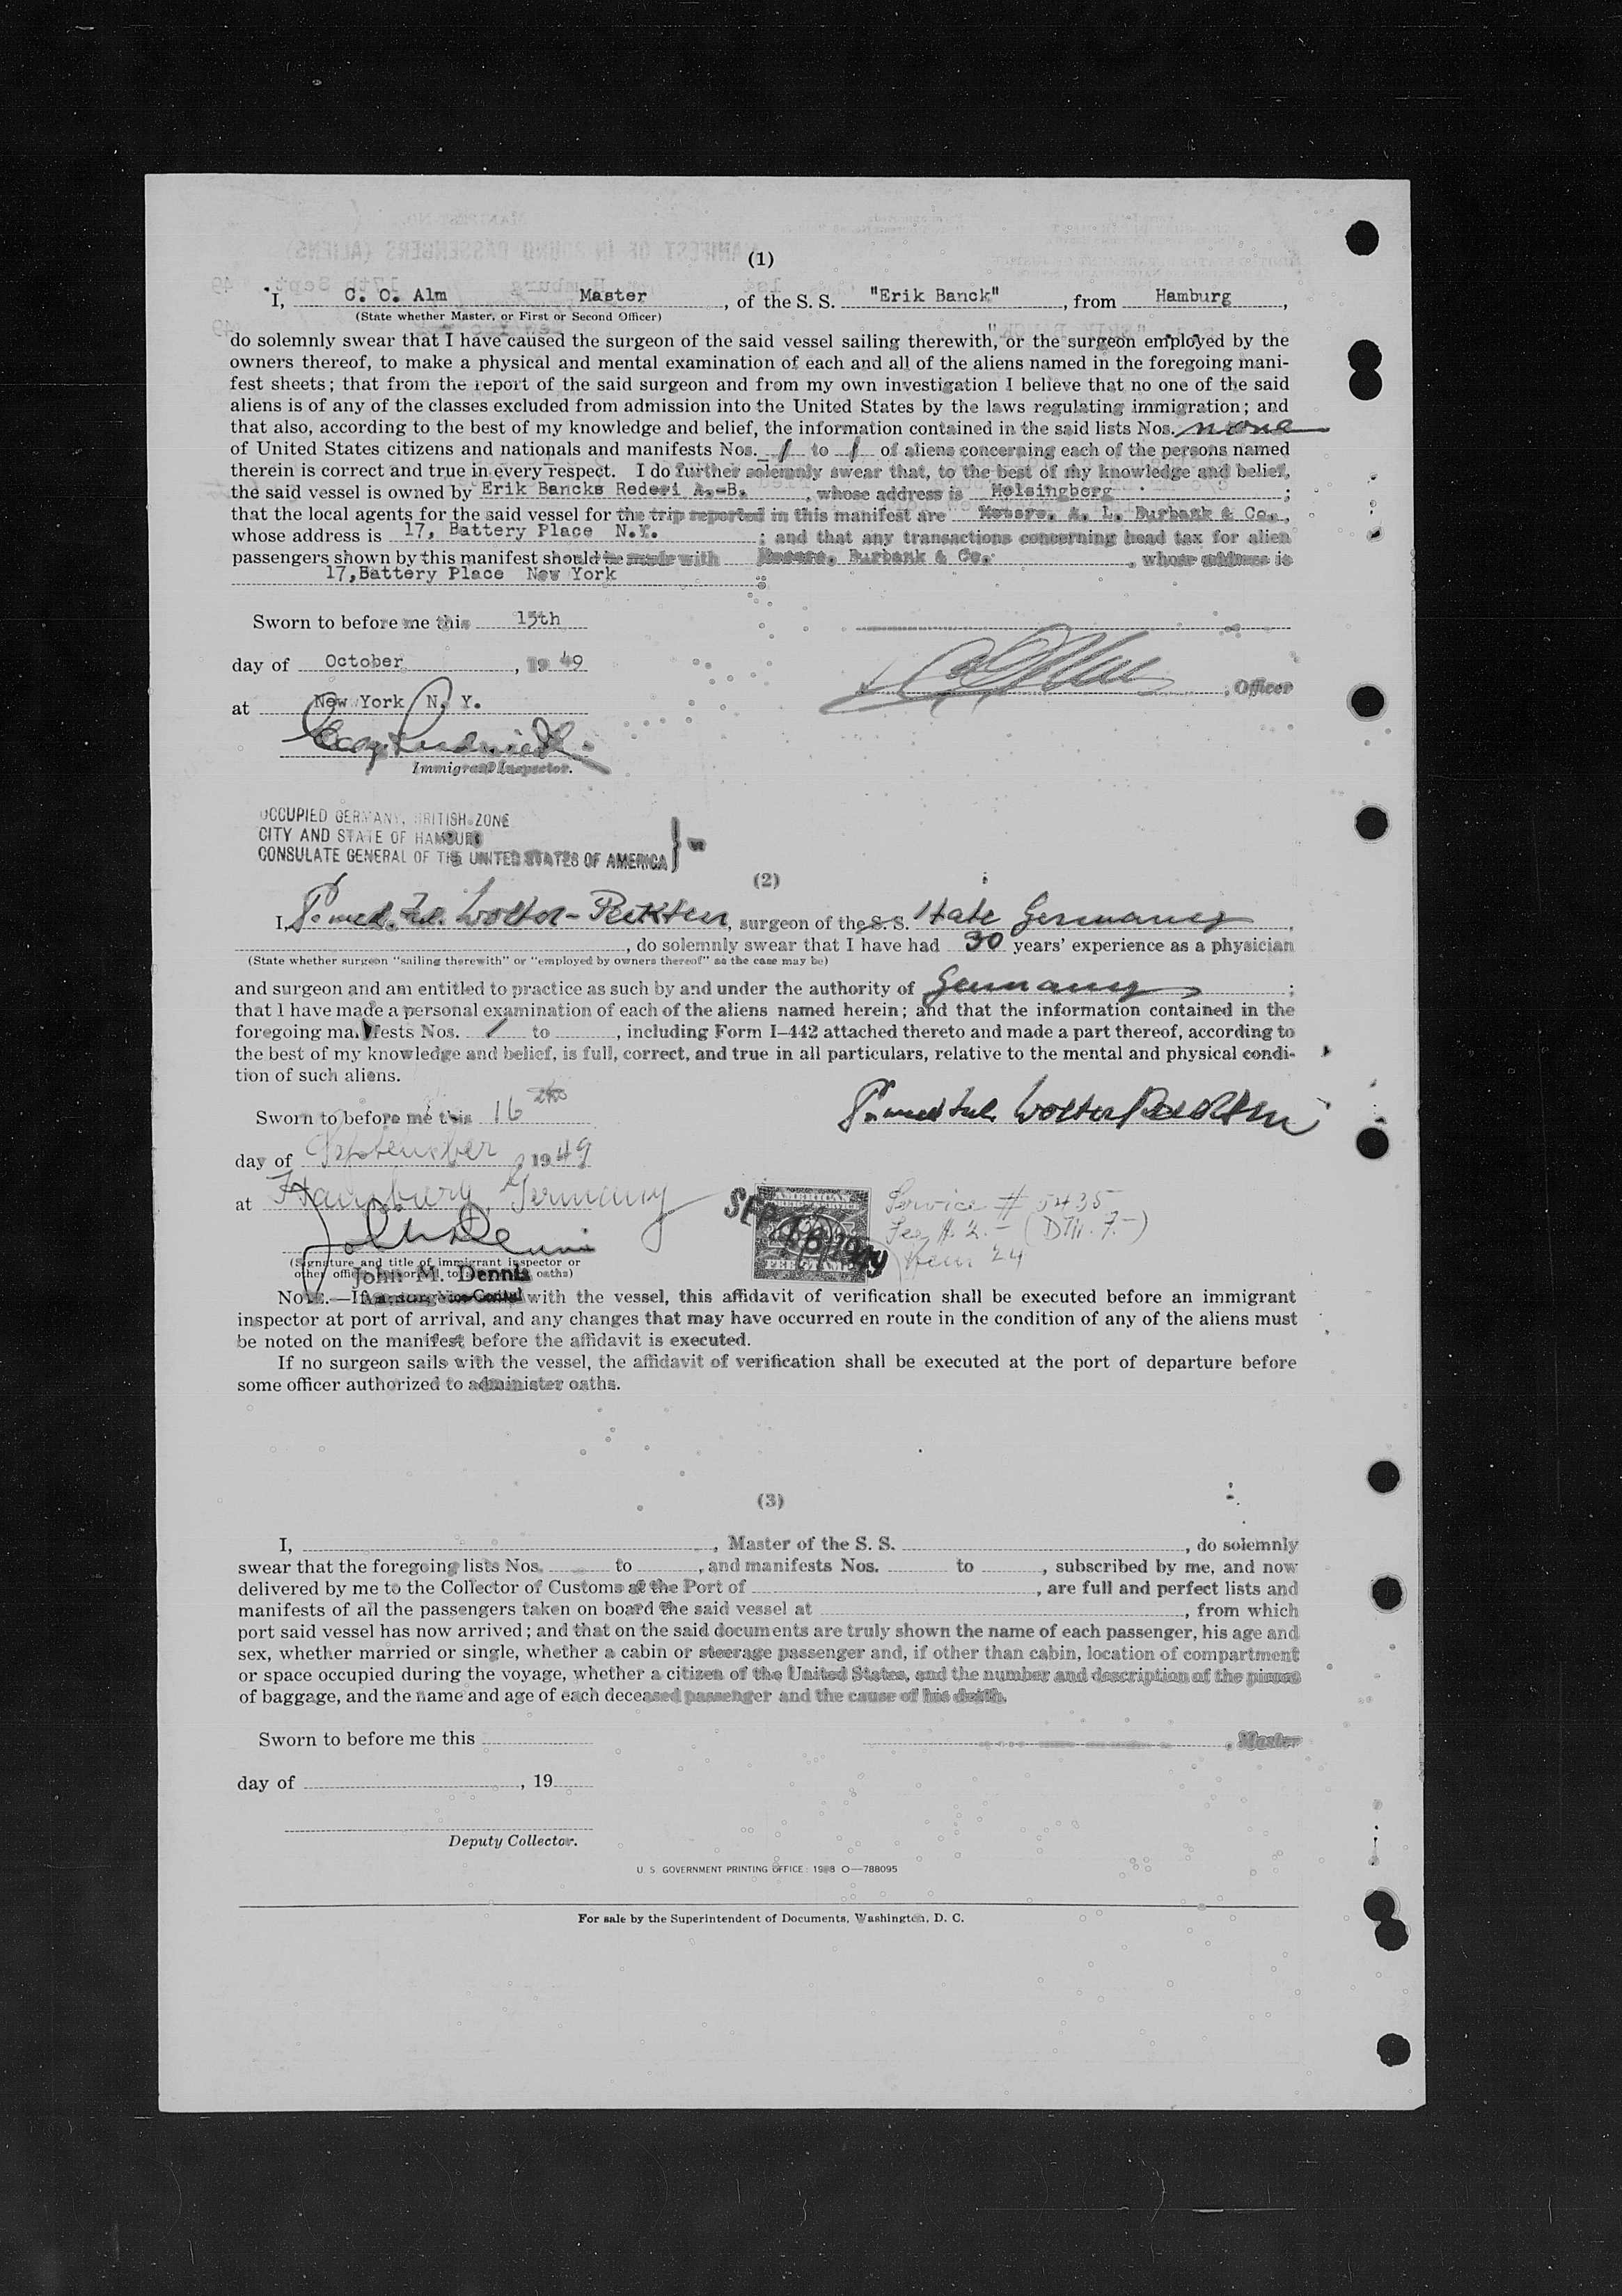 (1)
I, C. O. Alm Master, of the S. S. "Erik Banck", from Hamburg,
(State whether Master, or First or Second Officer)
do solemnly swear that I have caused the surgeon of the said vessel sailing therewith, or the surgeon employed by the
owners thereof, to make a physical and mental examination of each and all of the aliens named in the foregoing mani-
fest sheets; that from the report of the said surgeon and from my own investigation I believe that no one of the said
aliens is of any of the classes excluded from admission into the United States by the laws regulating immigration; and
that also, according to the best of my knowledge and belief, the information contained in the said lists Nos. none
of United States citizens and nationals and manifests Nos. 1 to 1 of aliens concerning each of the persons named
therein is correct and true in every respect. I do further solemnly swear that, to the best of my knowledge and belief,
the said vessel is owned by Erik Bancks Rederi A.-B., whose address is Helsingborg;
that the local agents for the said vessel for the trip reported in this manifest are Messrs. A. L. Burbank & Co.,
whose address is 17, Battery Place N.Y.; and that any transactions concerning head tax for alien
passengers shown by this manifest should be made with Messrs. Burbank & Co., whose address is
17, Battery Place New York
Sworn to before me this 15th
day of October, 19 49
, Officer
at New York N. Y.
Immigrant Inspector.
OCCUPIED GERMANY, BRITISH ZONE
CITY AND STATE OF HAMBURG
CONSULATE GENERAL OF THE UNITED STATES OF AMERICA
(2)
I, , surgeon of the S. S. State Germany,
, do solemnly swear that I have had 30 years' experience as a physician
(State whether surgeon "sailing therewith" or "employed by owners thereof" as the case may be)
and surgeon and am entitled to practice as such by and under the authority of Germany;
that I have made a personal examination of each of the aliens named herein; and that the information contained in the
foregoing manifests Nos. 1 to , including Form I-442 attached thereto and made a part thereof, according to
the best of my knowledge and belief, is full, correct, and true in all particulars, relative to the mental and physical condi-
tion of such aliens.
Sworn to before me this 16
day of September, 1949
at Hamburg, Germany
AMERICAN
FEE STAMP
Service # 5435
Fee $ 2.- (DM. 7.-)
Item 24
(Signature and title of immigrant inspector or
other officer authorized to administer oaths)
John M. Dennis
NOTE.—If a surgeon sails with the vessel, this affidavit of verification shall be executed before an immigrant
inspector at port of arrival, and any changes that may have occurred en route in the condition of any of the aliens must
be noted on the manifest before the affidavit is executed.
If no surgeon sails with the vessel, the affidavit of verification shall be executed at the port of departure before
some officer authorized to administer oaths.
(3)
I, , Master of the S. S. , do solemnly
swear that the foregoing lists Nos. to , and manifests Nos. to , subscribed by me, and now
delivered by me to the Collector of Customs at the Port of , are full and perfect lists and
manifests of all the passengers taken on board the said vessel at , from which
port said vessel has now arrived; and that on the said documents are truly shown the name of each passenger, his age and
sex, whether married or single, whether a cabin or steerage passenger and, if other than cabin, location of compartment
or space occupied during the voyage, whether a citizen of the United States, and the number and description of the pieces
of baggage, and the name and age of each deceased passenger and the cause of his death.
Sworn to before me this
, Master
day of , 19
Deputy Collector.
U. S. GOVERNMENT PRINTING OFFICE: 1948 O—788095
For sale by the Superintendent of Documents, Washington, D. C.